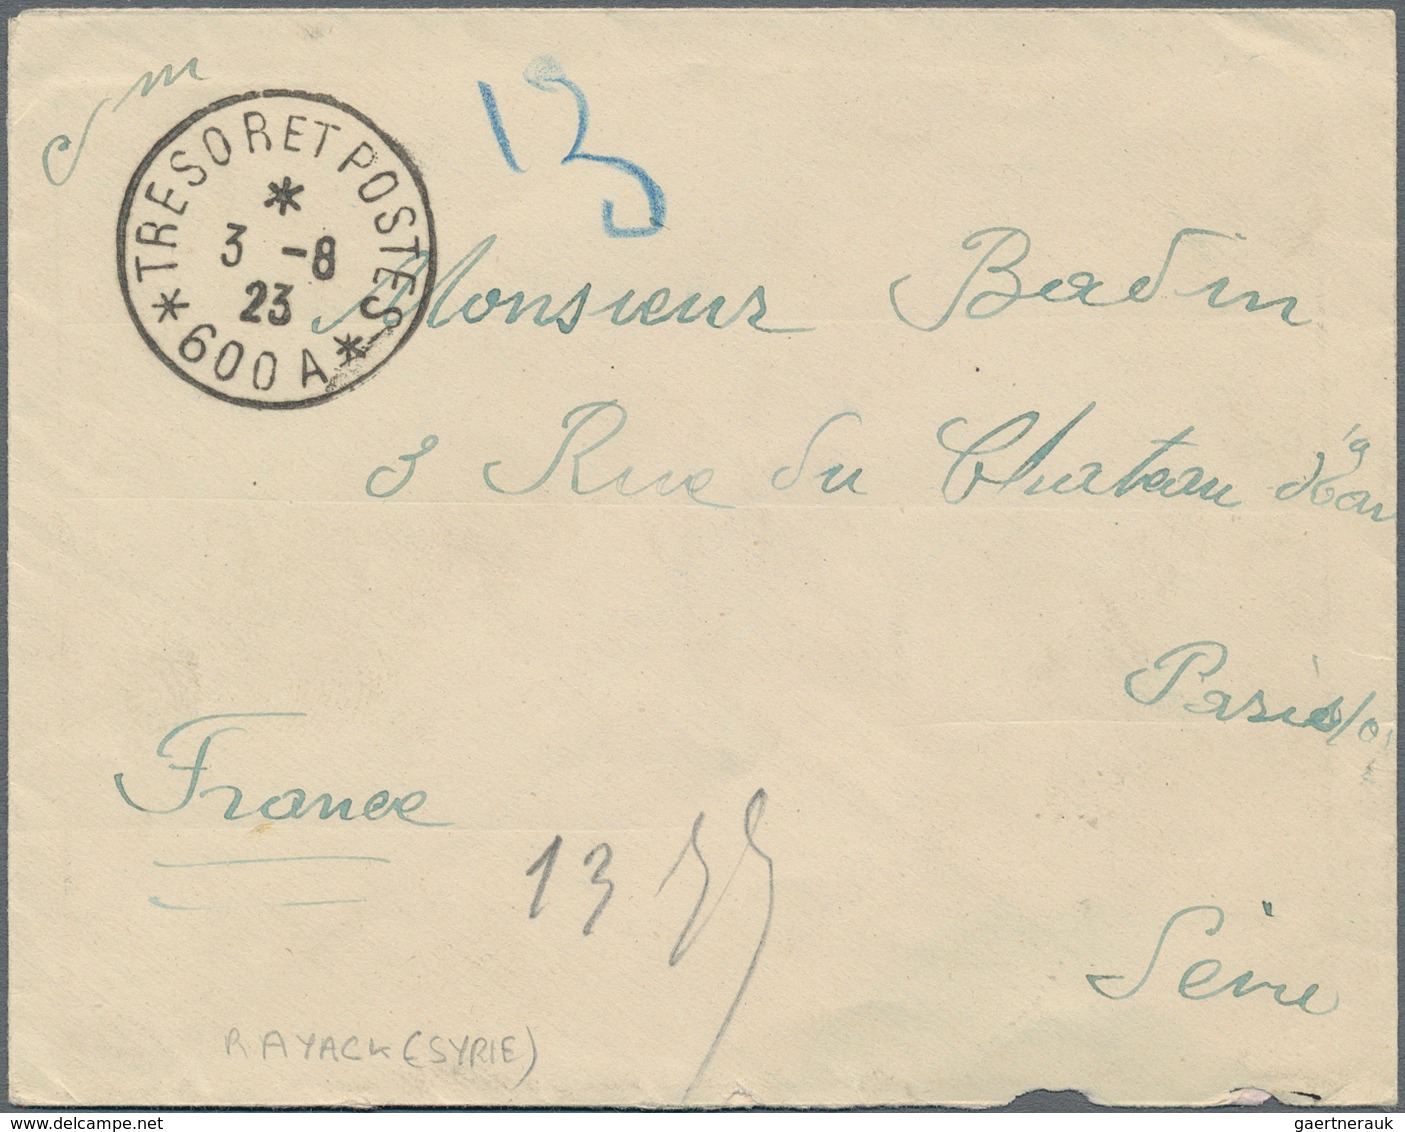 TRESOR ET POSTES
3 -8
23
600 A
13
Monsieur Badin
3 Rue du Chateau d'Eau
Paris
France
13
RAYACK (SYRIE)
delcampe.net
gaertnerauk